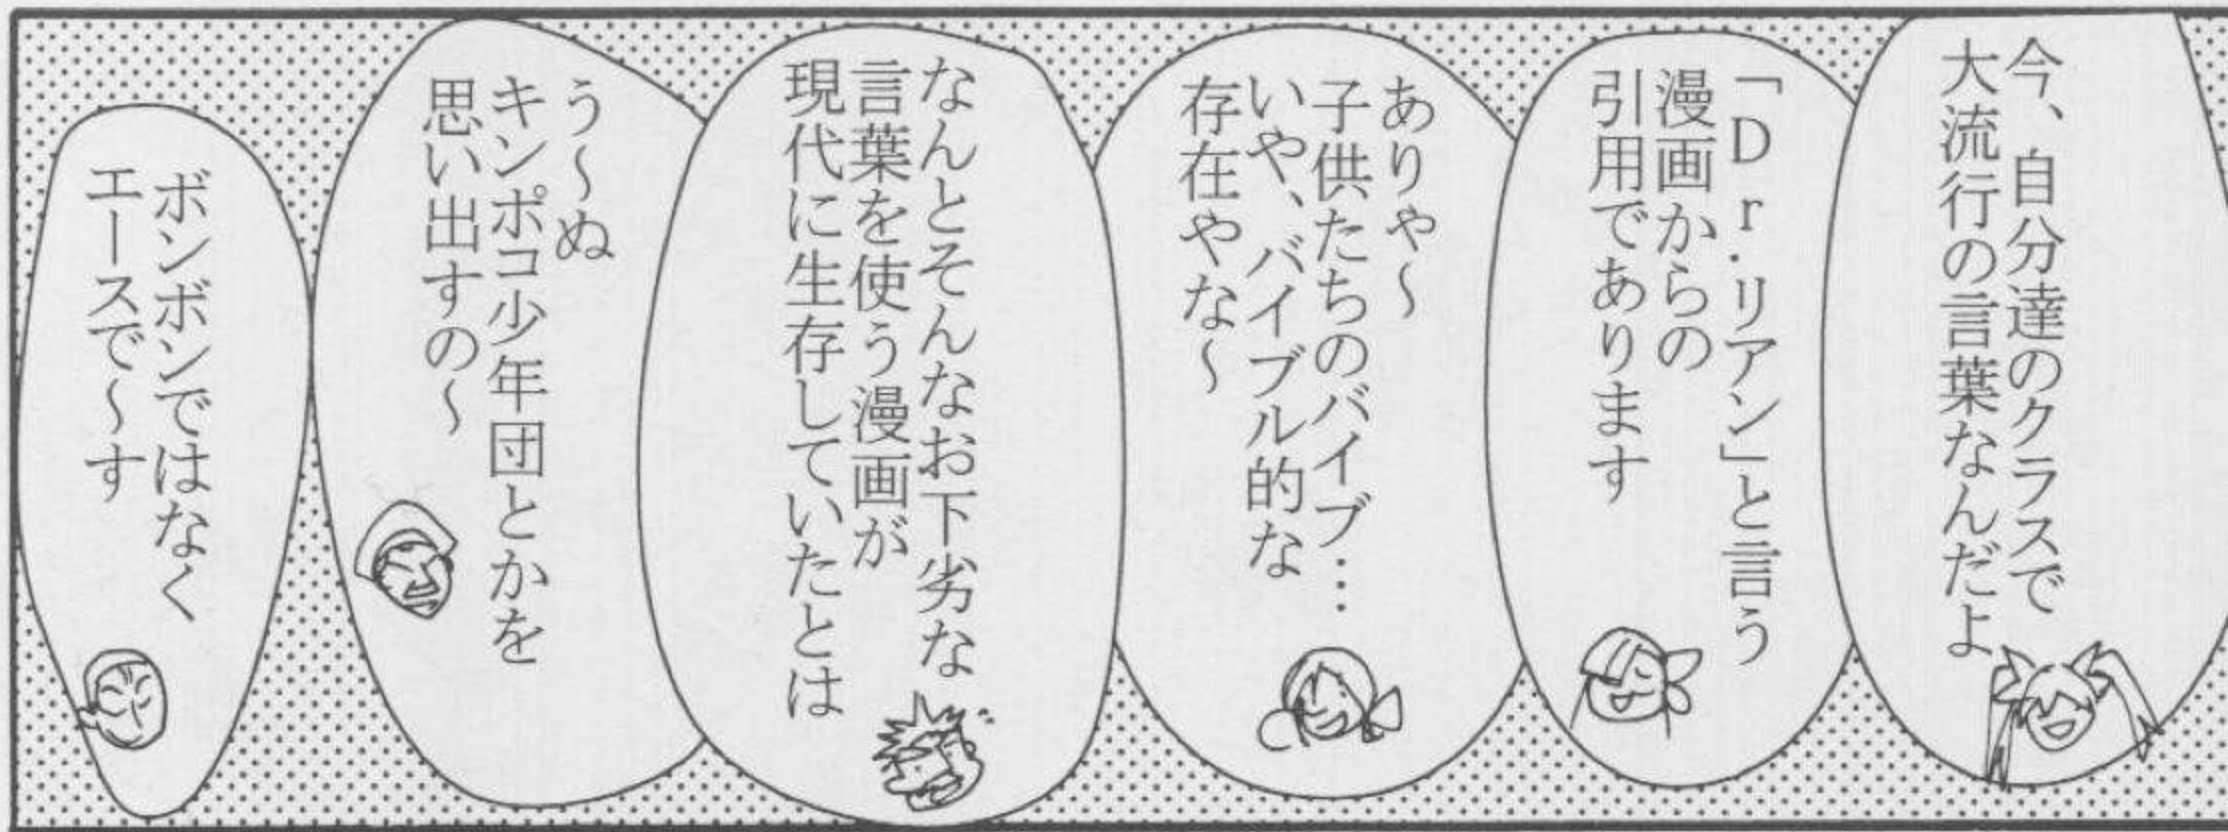 今、自分達のクラスで
大流行の言葉なんだよ
「Dr.リアン」と言う
漫画からの
引用であります
ありゃ～
子供たちのバイブ…
いや、バイブル的な
存在やな～
なんとそんなお下劣な
言葉を使う漫画が
現代に生存していたとは
う～ぬ
キンポコ少年団とかを
思い出すの～
ボンボンではなく
エースで～す